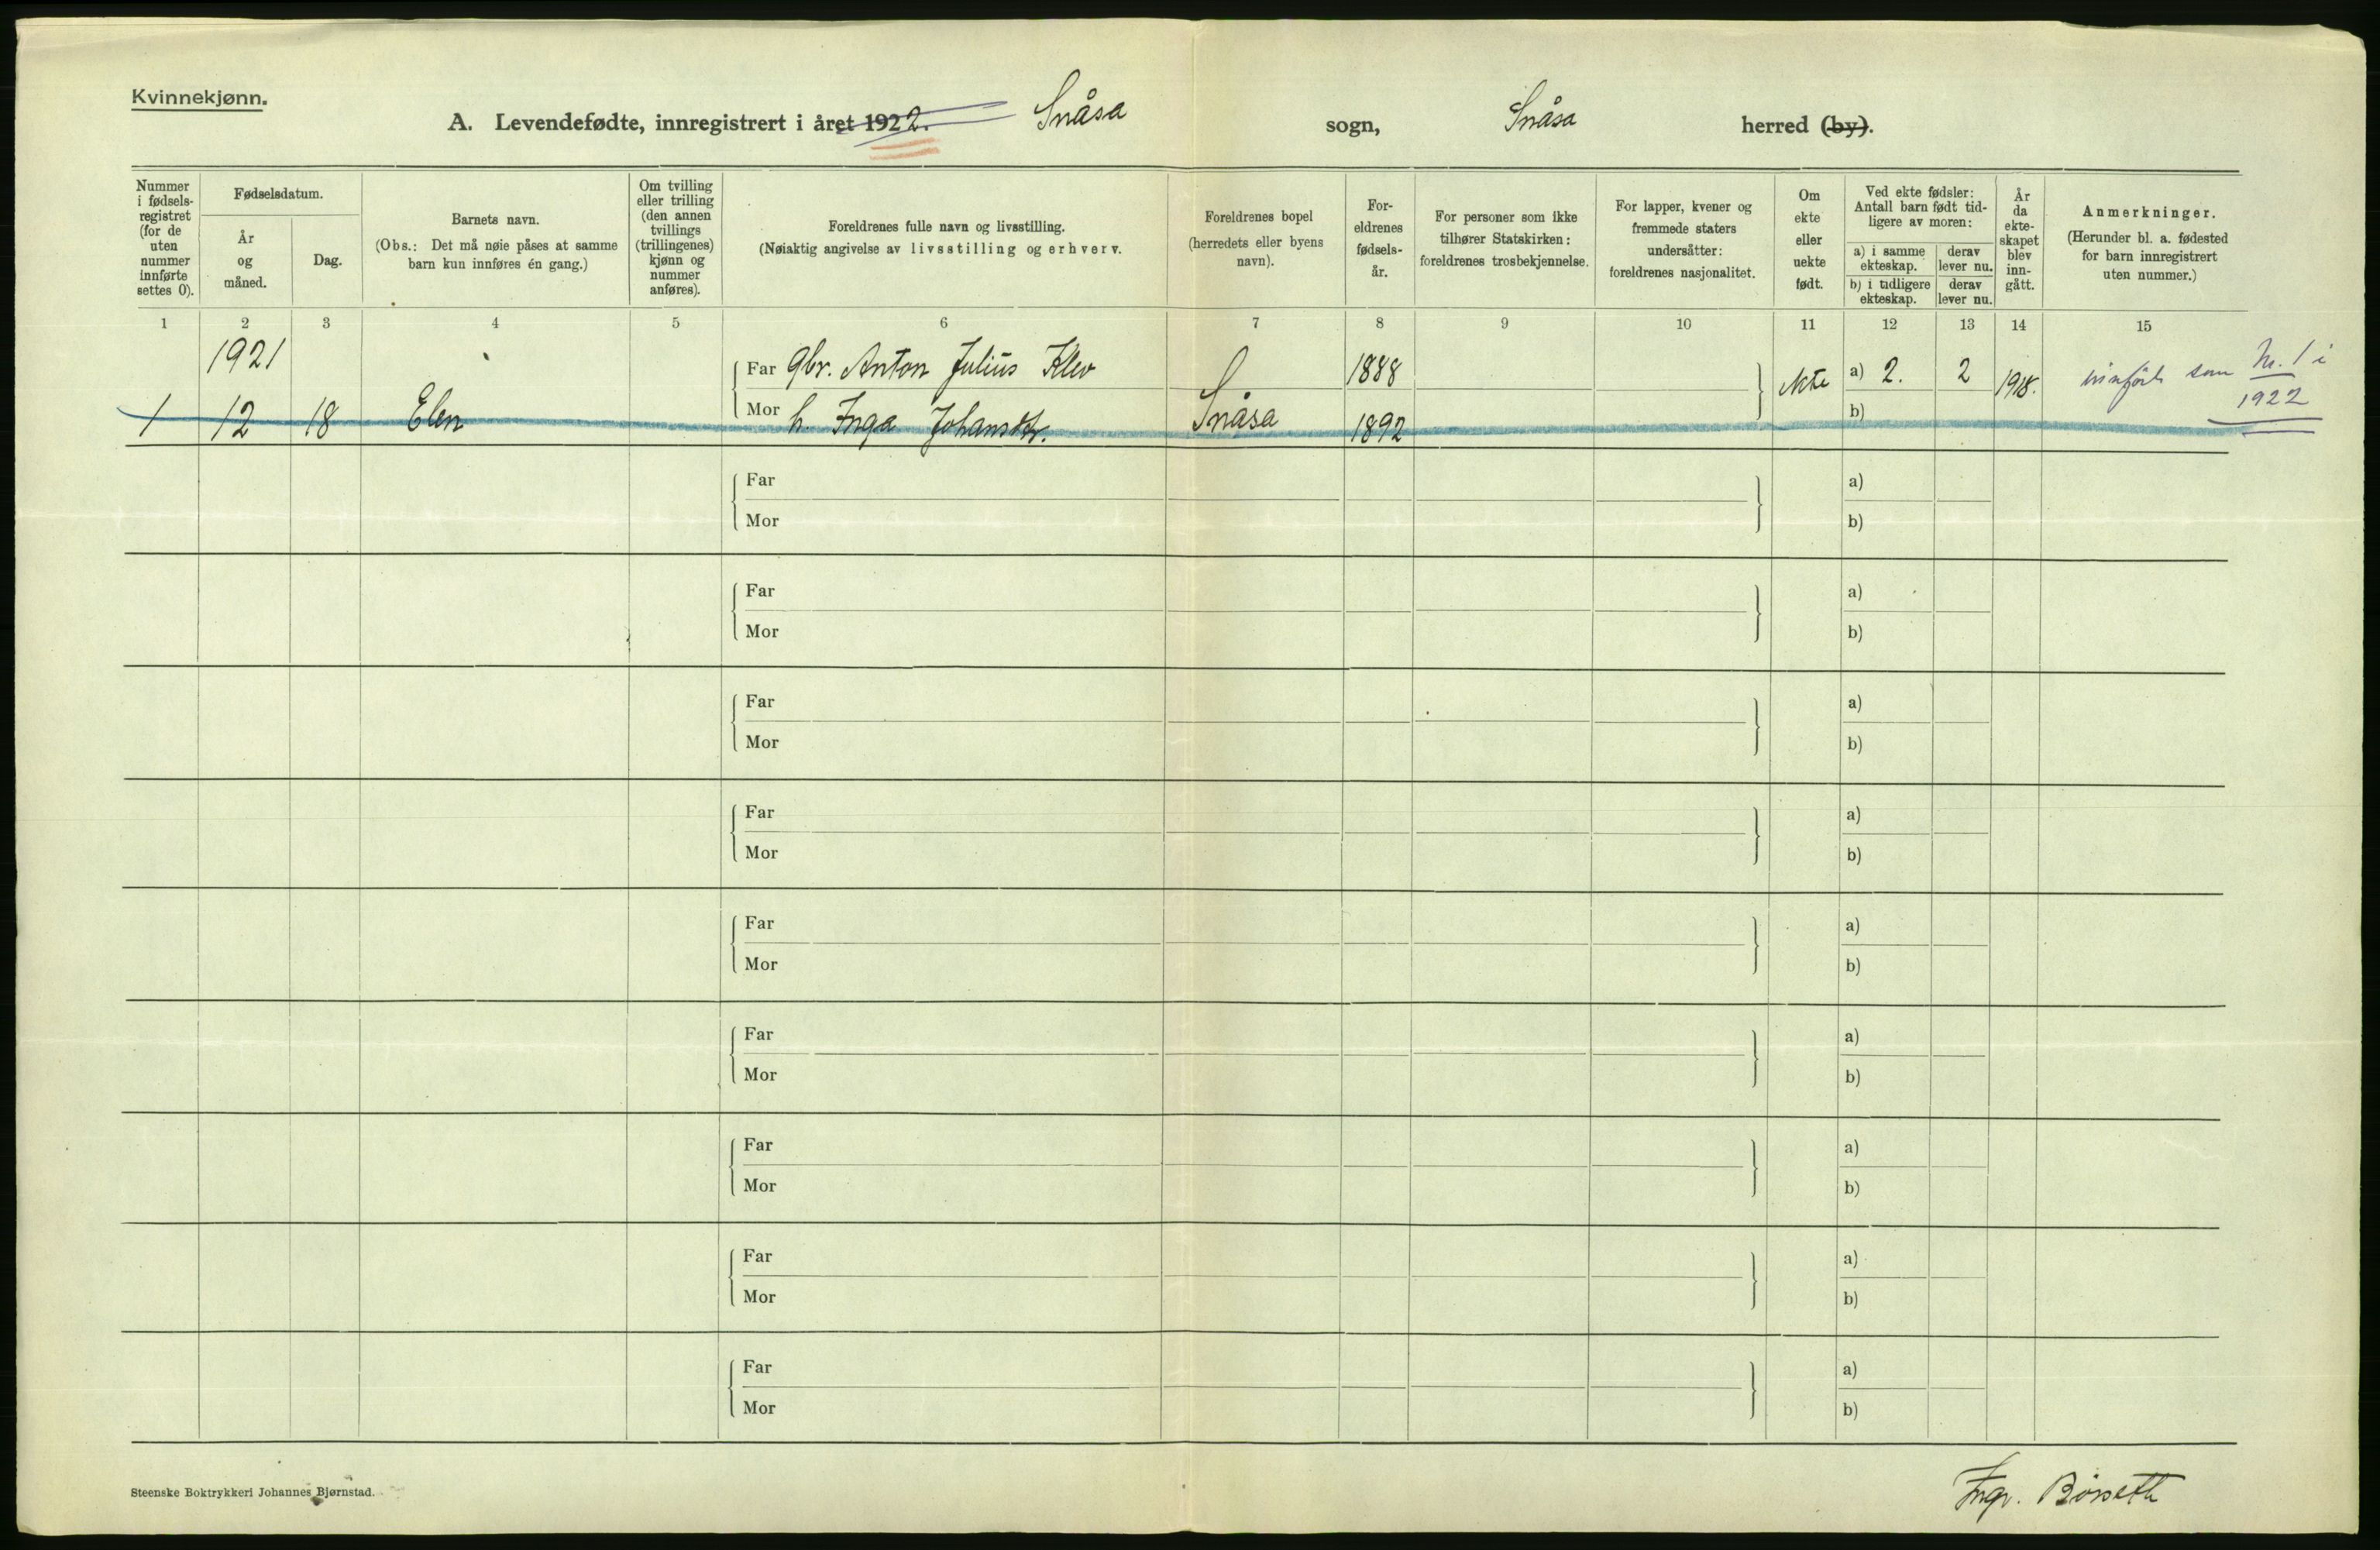 Kvinnekjønn.
A. Levendefødte, innregistrert i året 1922. Snåsa sogn, Snåsa herred (by).
Nummer i fødsels-registret (for de uten nummer innførte settes 0).
Fødselsdatum.
År og måned.
Dag.
Barnets navn.
(Obs.: Det må nøie påses at samme barn kun innføres én gang.)
Om tvilling eller trilling (den annen tvillings (trillingenes) kjønn og nummer anføres).
Foreldrenes fulle navn og livsstilling.
(Nøiaktig angivelse av livsstilling og erhverv.
Foreldrenes bopel (herredets eller byens navn).
For-eldrenes fødsels-år.
For personer som ikke tilhører Statskirken: foreldrenes trosbekjennelse.
For lapper, kvener og fremmede staters undersåtter: foreldrenes nasjonalitet.
Om ekte eller uekte født.
Ved ekte fødsler: Antall barn født tid-ligere av moren:
a) i samme ekteskap.
derav lever nu.
b) i tidligere ekteskap.
derav lever nu.
År da ekte-skapet blev inn-gått.
Anmerkninger.
(Herunder bl. a. fødested for barn innregistrert uten nummer.)
1 2 3 4 5 6 7 8 9 10 11 12 13 14 15
1921 Far Gbr. Anton Julius Klev 1888 ekte a) 2. 2 1918. innført som Nr. 1 i
1 12 18 Elen Mor h. Inga Johansdtr. Snåsa 1892 b) 1922
Far a)
Mor b)
Far a)
Mor b)
Far a)
Mor b)
Far a)
Mor b)
Far a)
Mor b)
Far a)
Mor b)
Far a)
Mor b)
Far a)
Mor b)
Far a)
Mor b)
Steenske Boktrykkeri Johannes Bjørnstad.
Ingv. Bøsseth